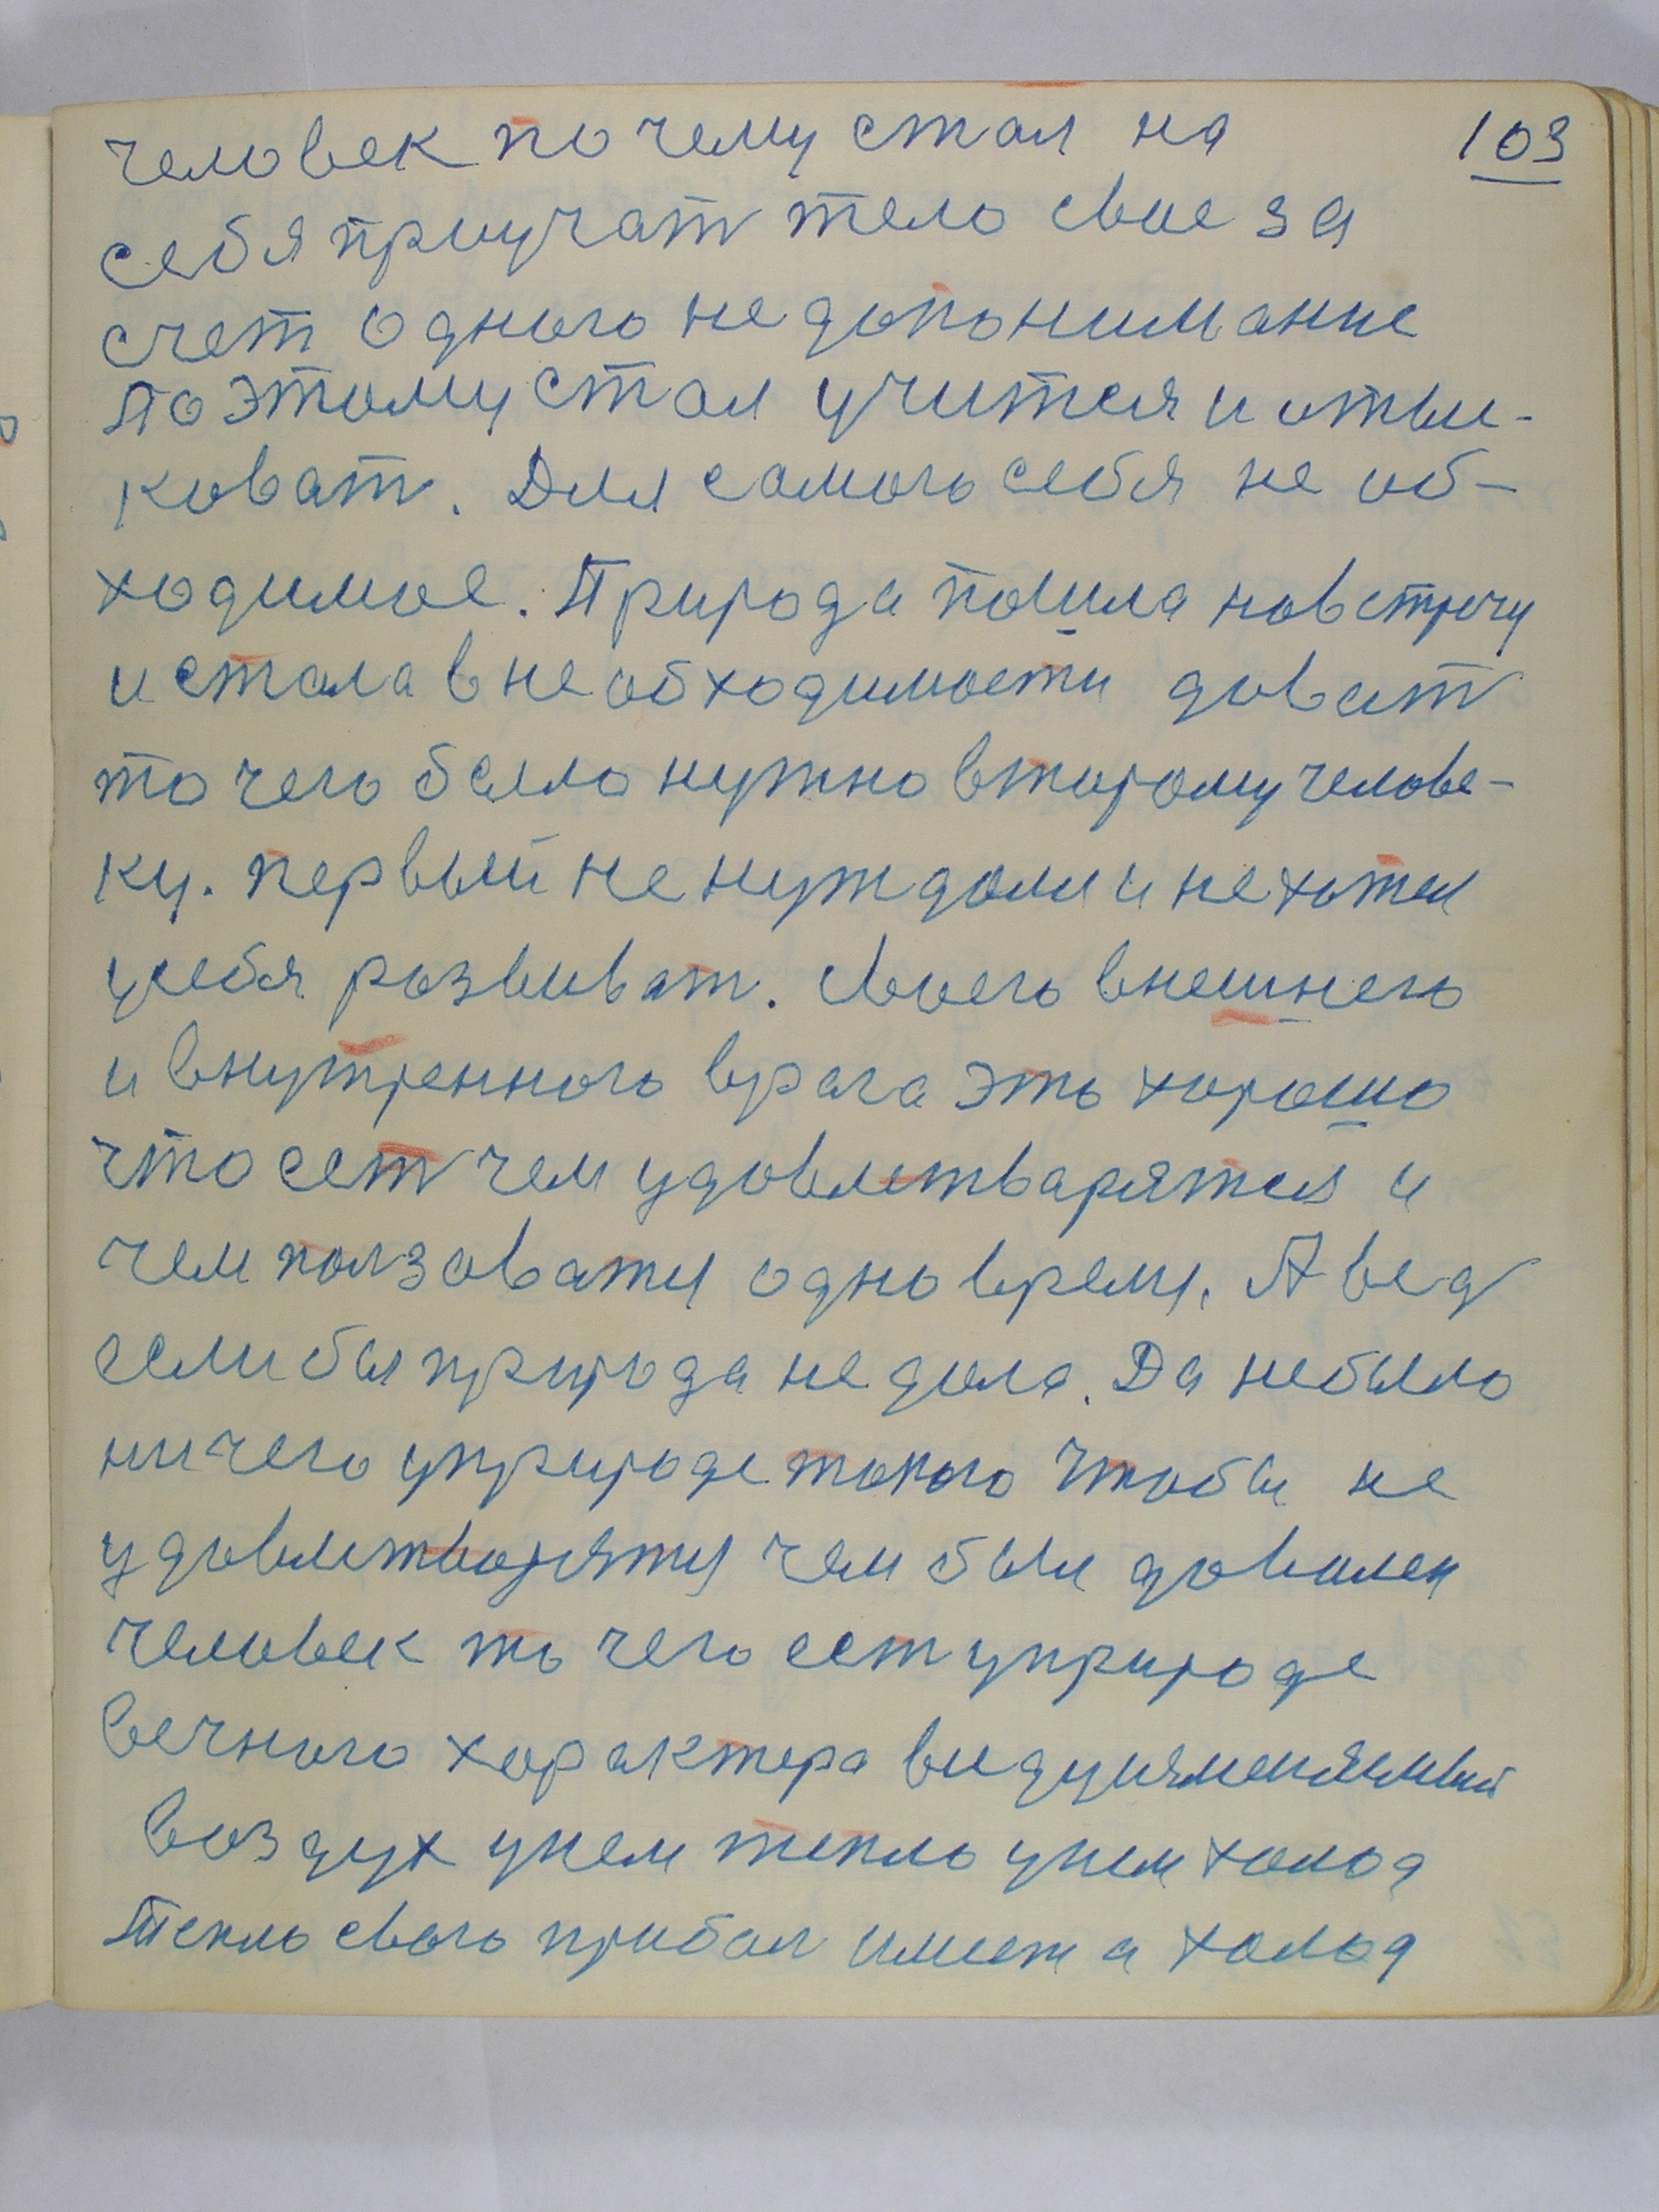 103
человек почему стал на
себя приучат тело свое за
счет одного недопонимание
поэтому стал учится и отыс-
коват. Для самого себя не об-
ходимое. Природа пошла новстречу
и стала в необходимости доват
то чего было нужно второму челове-
ку. первый не нуждался и не хотел
у себя розвиват. Своего внешнего
и внутренного врага это хорошо
что ест чем удовлетварятся и
чем ползоватся одно время. А вед
если бы природа не дола. Да небыло
ничего у природе токого чтобы не
удовлетворятся чем был доволен
человек то чего ест у природе
вечного характера
воздух у нем тепло у нем холод
Тепло свого прибол имеет а холод